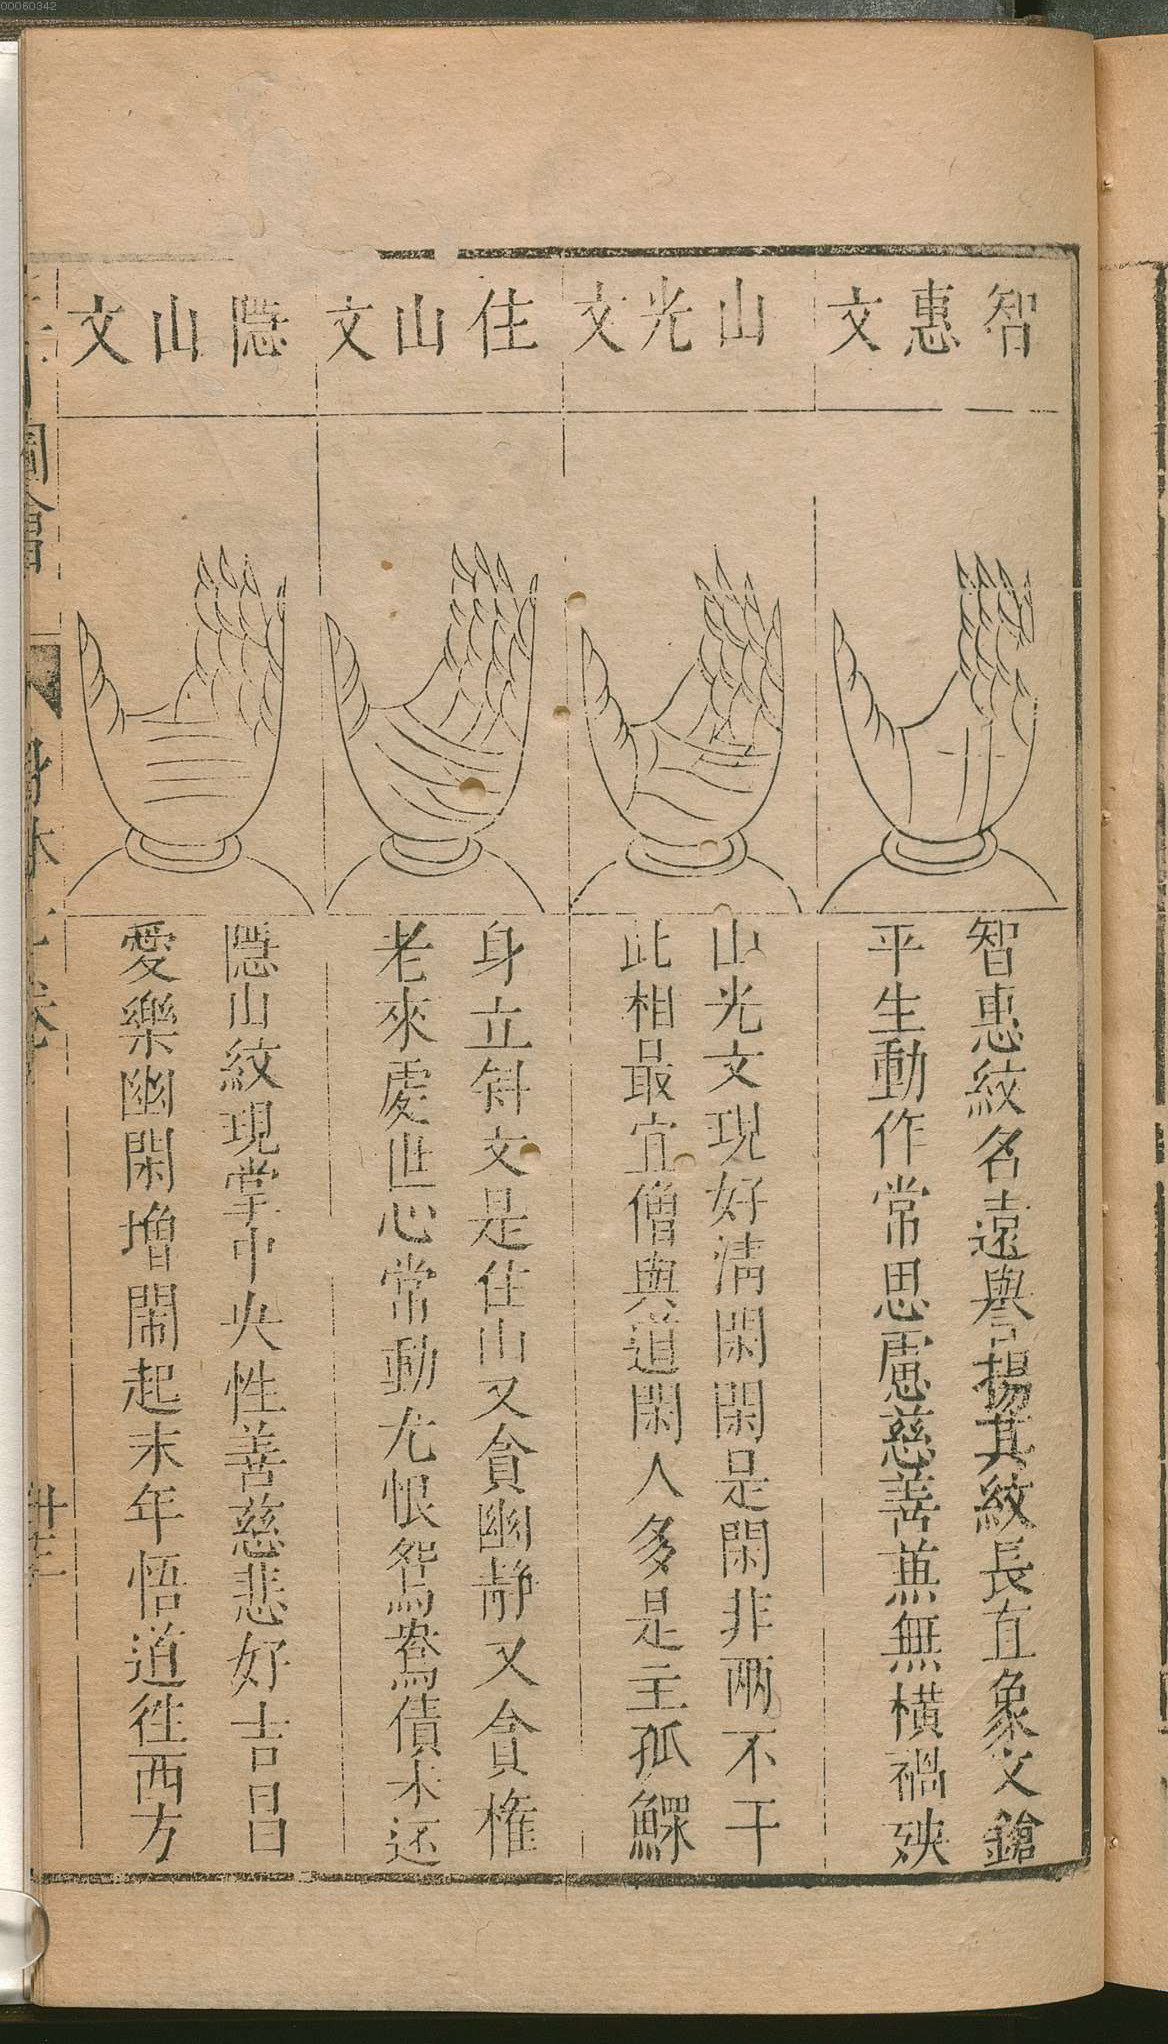 00060342
智惠文
智惠紋名遠譽揚其紋長直象文鎗
平生動作常思慮慈善蒹無橫禍殃
山光文
山光文現好淸閑閑是閑非兩不干
此相最宜僧與道閑人多是主孤鰥
住山文
身立斜文是住山又貪幽靜又貪權
老來處世心常動尤恨鴛鴦債未还
隱山文
隱山紋現掌中央性善慈悲好吉昌
愛樂幽閑增鬧起末年悟道徃西方
圖會
身体七卷
卅三